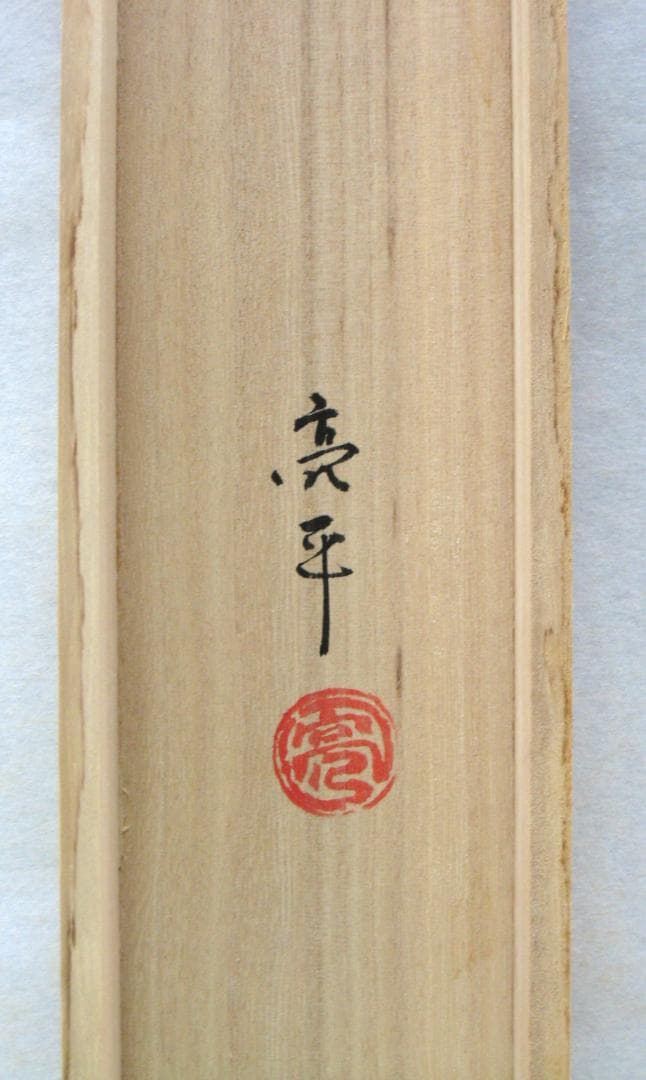 亮平
亮